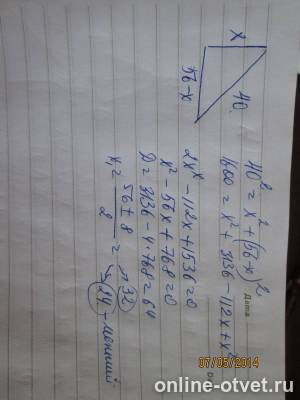 Дата
x
40
56-x
40² = x² + (56-x)²
1600 = x² + 3136 - 112x + x²
2x² - 112x + 1536 = 0
x² - 56x + 768 = 0
D = 3136 - 4·768 = 64
x₁ = 56 ± 8 / 2 = → 32
→ 24 - меньший
07/05/2014
online-otvet.ru